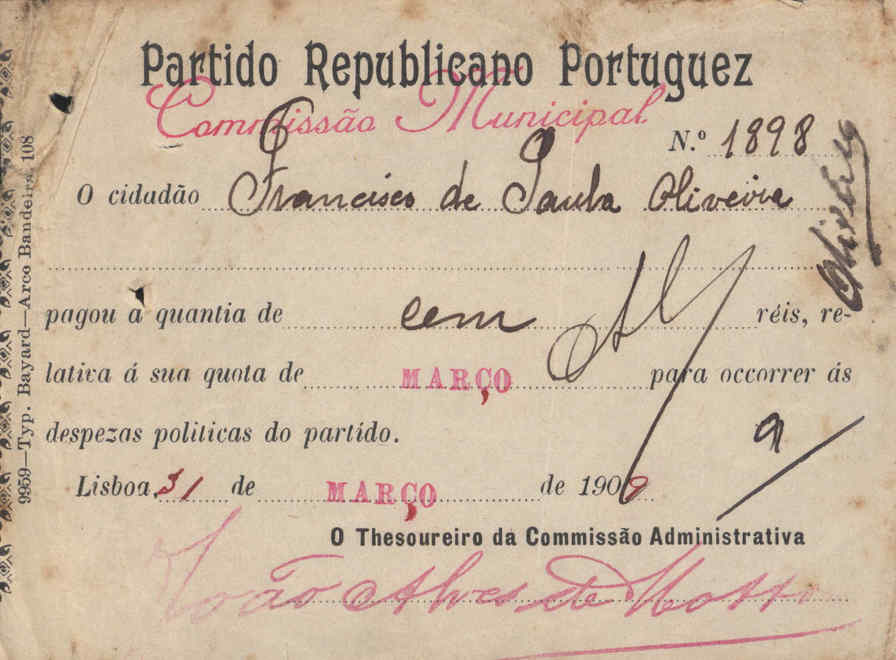 Partido Republicano Portuguez
Commissão Municipal
N.º 1898
O cidadão Francisco de Paula Oliveira
pagou a quantia de cem réis, re-
lativa á sua quota de MARÇO para occorrer ás
despezas politicas do partido.
Lisboa, 31 de MARÇO de 1909
O Thesoureiro da Commissão Administrativa
João Alves de Mattos
9959—Typ. Bayard—Arco Bandeira, 108